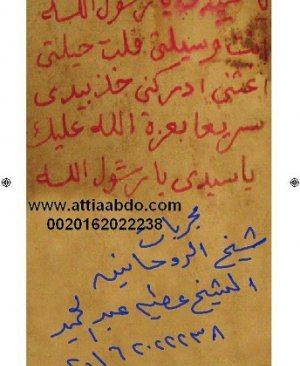 يا رسول الله
أنت وسيلتي قلت حيلتي
أغثني ادركني خذ بيدي
سريعا بعزة الله عليك
يا سيدي يا رسول الله
www.attiaabdo.com
0020162022238
مجربات
شيخ الروحانيه
الشيخ عطيه عبد الحميد
٢٠١٦٢٠٢٢٢٣٨